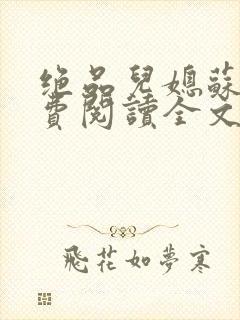 绝品兒媳蘇
費閱讀全文
飛花如夢寒